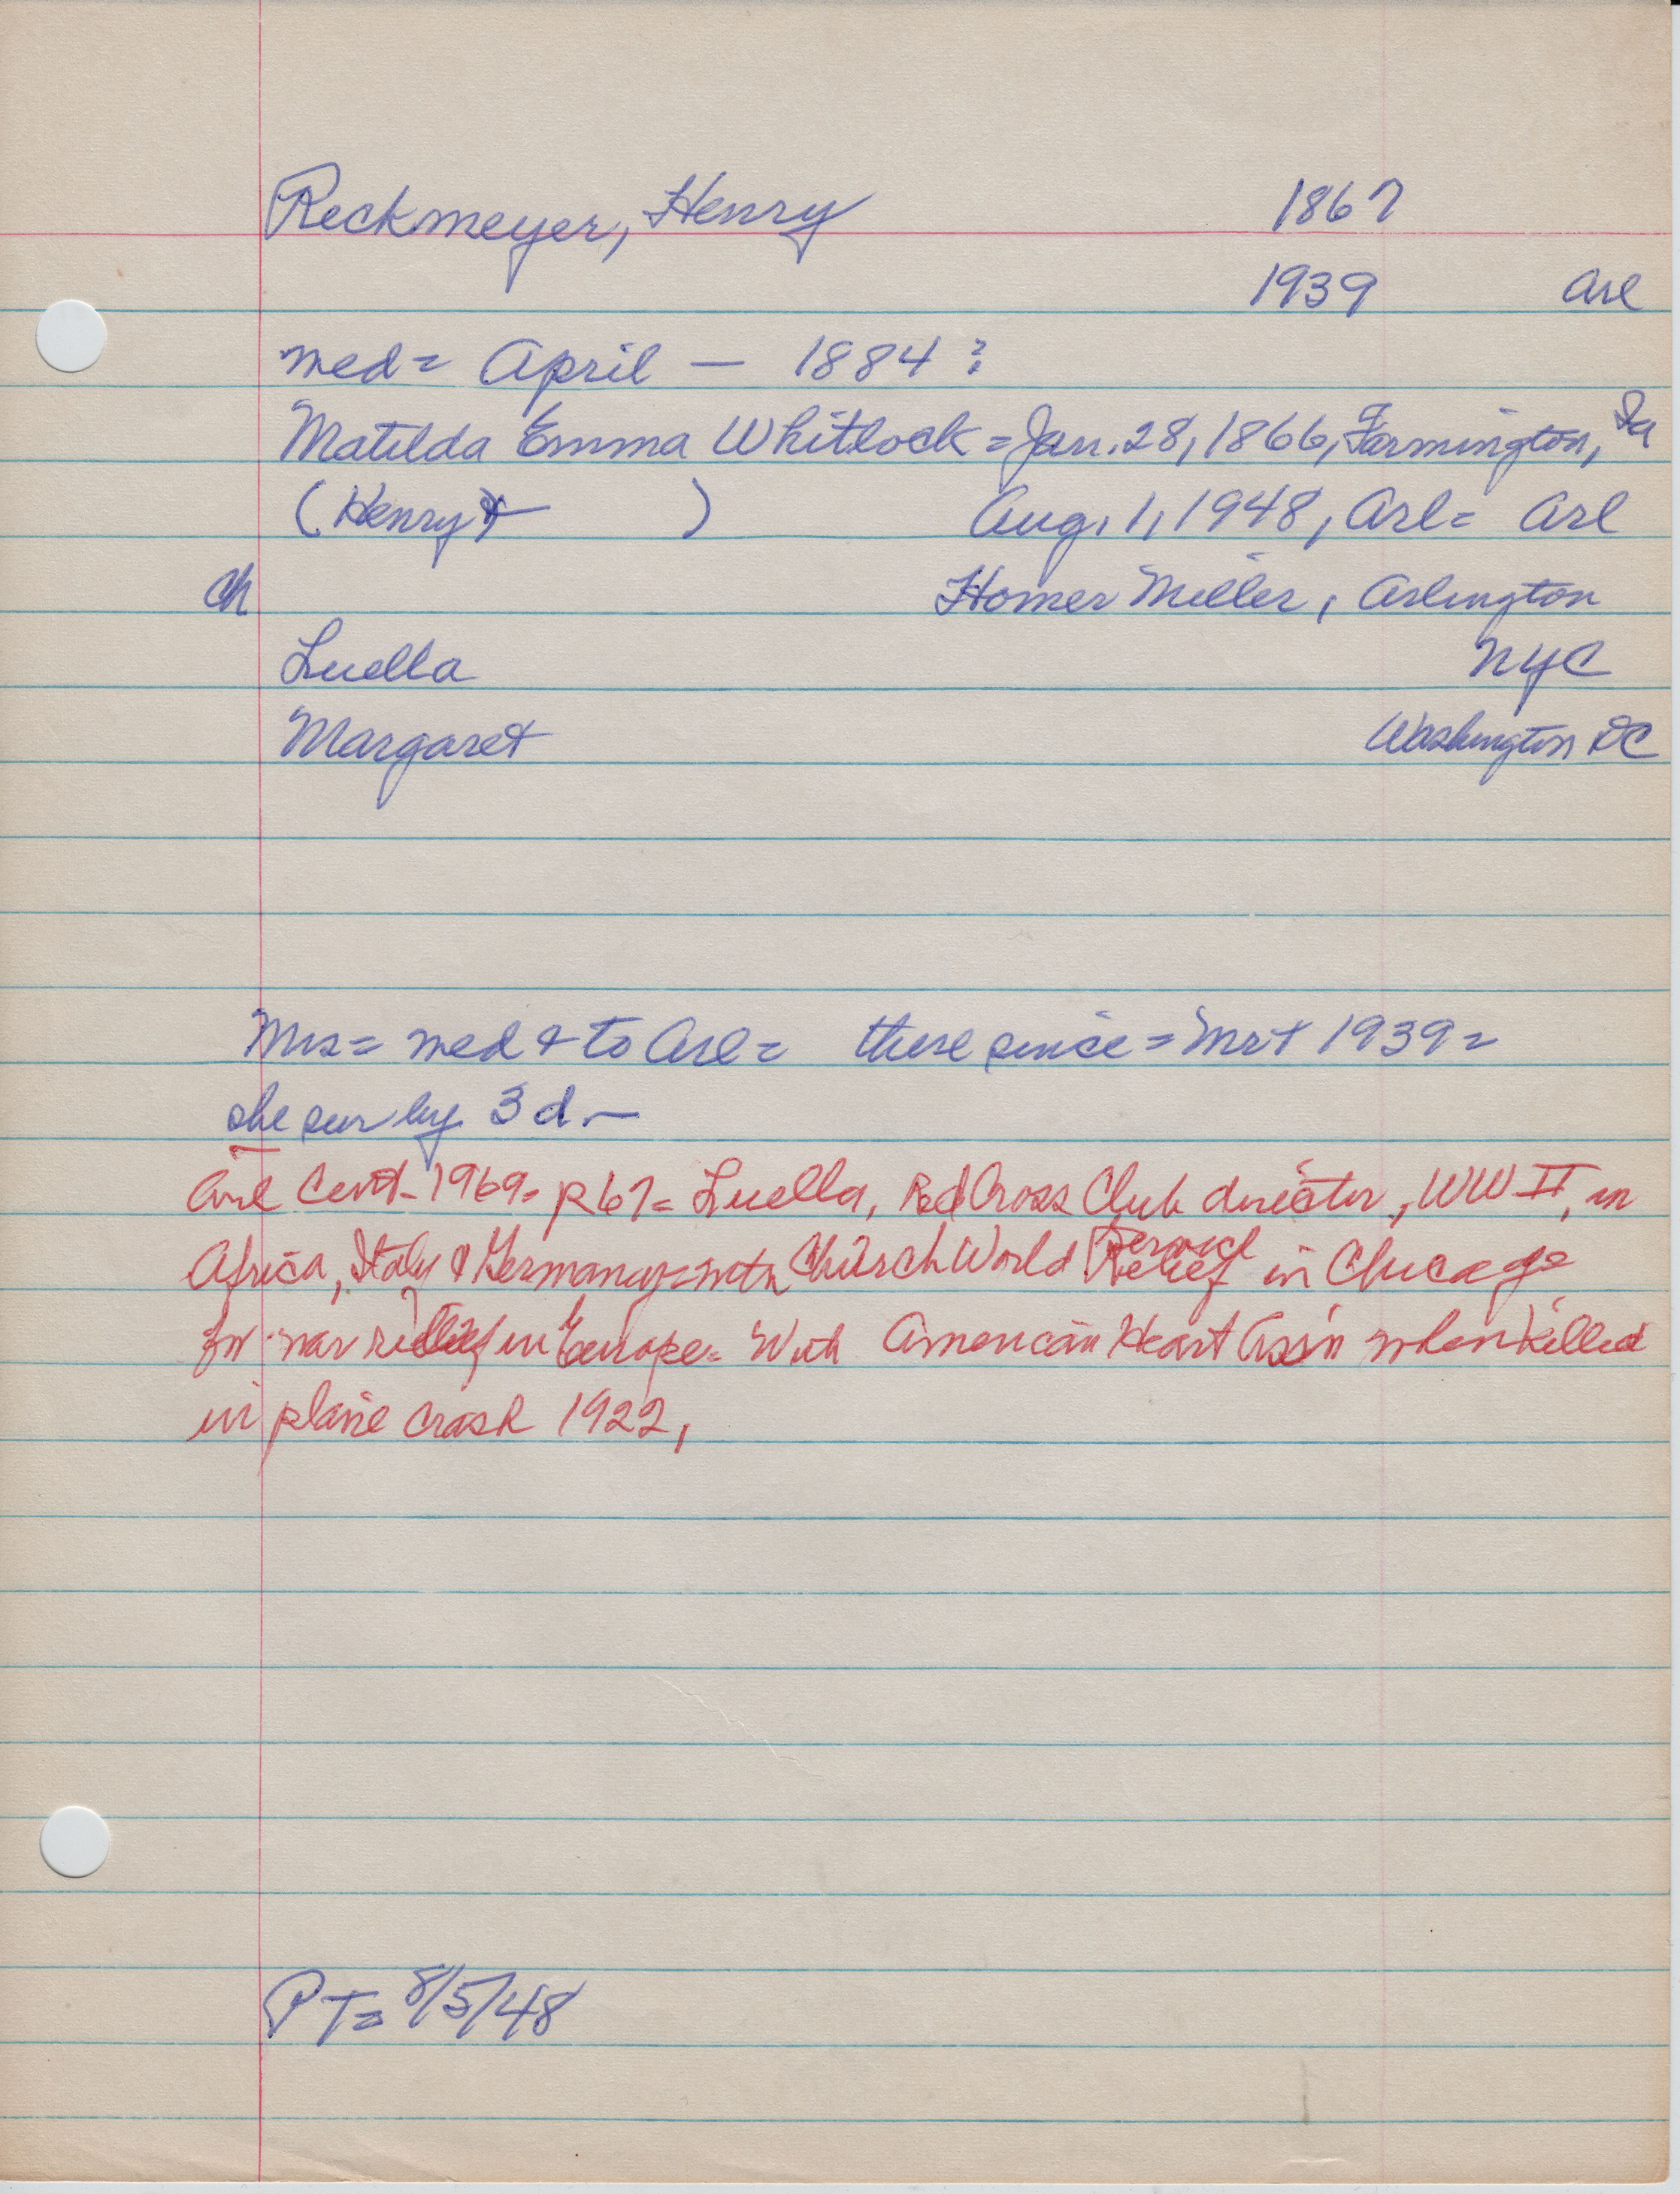 Reckmeyer, Henry 1867
1939 Arl
med = April — 1884 ?
Matilda Emma Whitlock = Jan. 28, 1866, Farmington, Ia
(Henry + ) Aug. 1, 1948, Arl = Arl
Ch Homer Miller, Arlington
Luella NYC
Margaret Washington DC
Mrs = med & to Arl = there since = Mr + 1939 =
she sur by 3 d. —
Arl Cent - 1969 = p 67 = Luella, Red Cross Club director, WW II, in
Africa, Italy & Germany = with Church World Relief Service in Chicago
for war relief in Europe = With American Heart Ass'n when killed
in plane crash 1922,
PT = 8/5/48